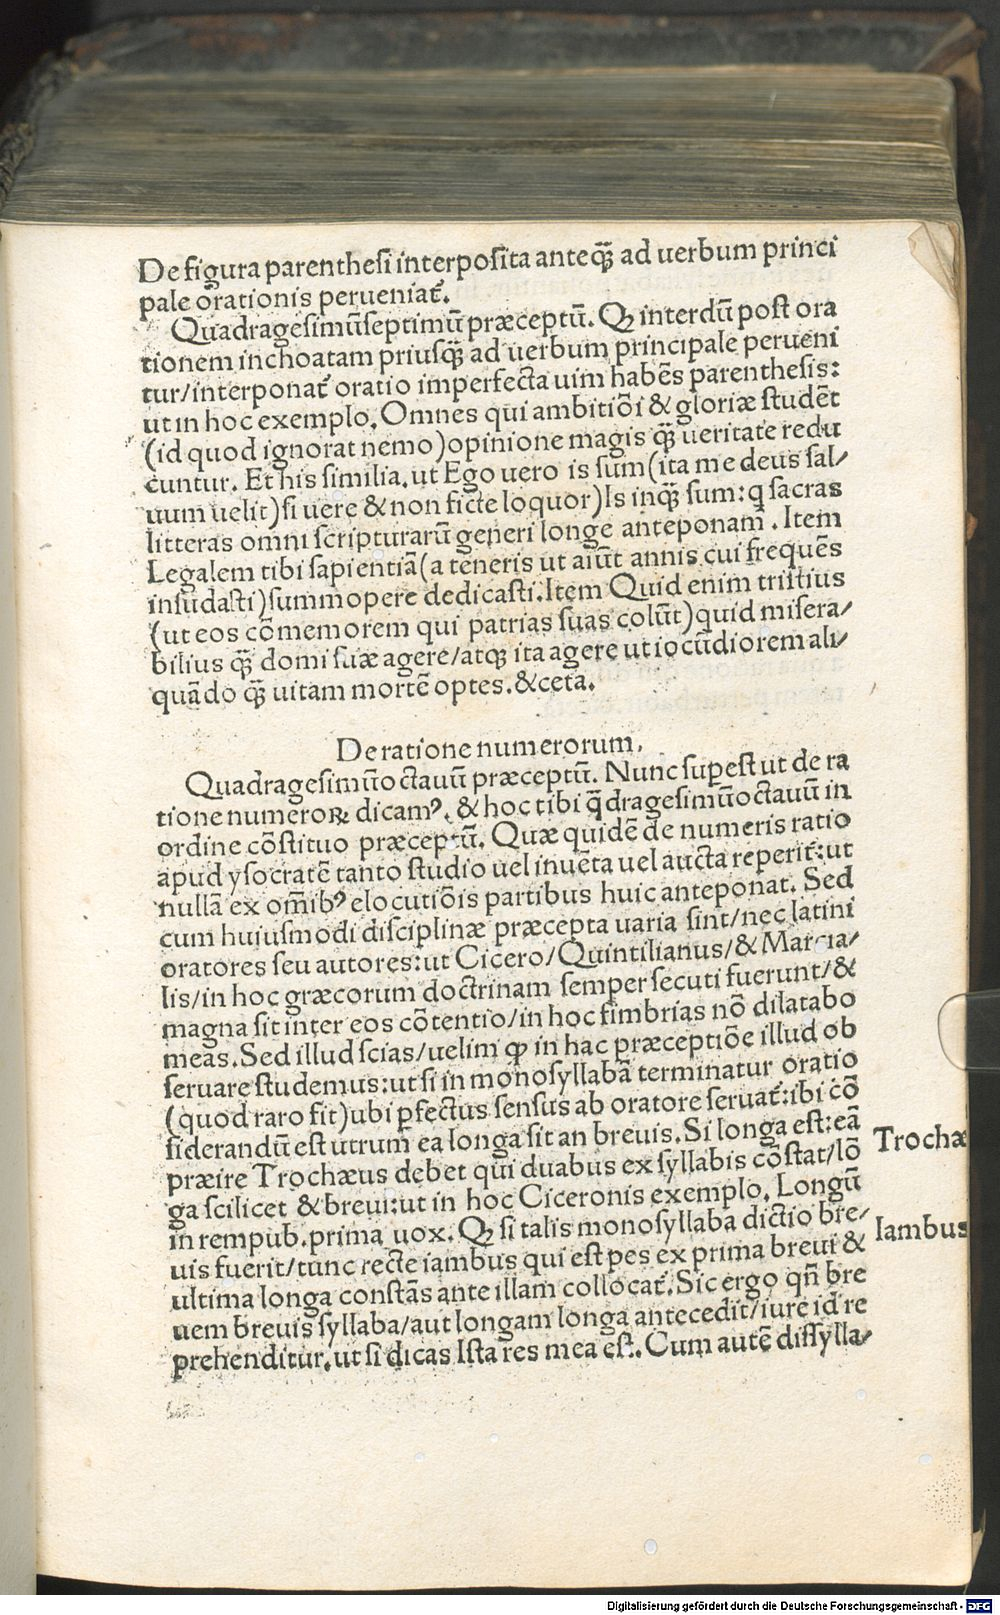 De figura parenthesi interposita anteq̃ȝ ad uerbum princi
pale orationis perueniat᷑.
Quadragesimũseptimũ præceptũ. Qȝ interdũ post ora
tionem inchoatam priusq̃ȝ ad uerbum principale perueni
tur/interponat᷑ oratio imperfecta uim habẽs parenthesis:
ut in hoc exemplo. Omnes qui ambitiõi & gloriæ studẽt
(id quod ignorat nemo)opinione magis q̃ȝ ueritate redu
cuntur. Et his similia. ut Ego uero is sum(ita me deus sal/
uum uelit)si uere & non ficte loquor)Is inq̃ȝ sum: q sacras
litteras omni scripturarũ generi longe anteponam . Item
Legalem tibi sapientiã(a teneris ut aiũt annis cui frequẽs
insudasti)summopere dedicasti. Item Quid enim tristius
(ut eos cõmemorem qui patrias suas colũt)quid misera/
bilius q̃ȝ domi suæ agere/atqȝ ita agere ut iocũdiorem ali/
quãdo q̃ȝ uitam mortẽ optes. &ceta.
De ratione numerorum.
Quadragesimũoctauũ præceptũ. Nunc suꝑest ut de ra
tione numeroꝝ dicamꝰ. & hoc tibi q̃dragesimũoctauũ in
ordine cõstituo præceptũ. Quæ quidẽ de numeris ratio
apud ysocratẽ tanto studio uel inuẽta uel aucta reperit᷑: ut
nullã ex om̃ibꝰ elocutiõis partibus huic anteponat. Sed
cum huiusmodi disciplinæ præcepta uaria sint/nec latini
oratores seu autores: ut Cicero/Quintilianus/& Marcia/
lis/in hoc græcorum doctrinam semper secuti fuerunt/&
magna sit inter eos cõtentio/in hoc fimbrias nõ dilatabo
meas. Sed illud scias/uelim ꝙ in hac præceptiõe illud ob
seruare studemus: ut si in monosyllabã terminatur oratio
(quod raro fit)ubi ꝑfectus sensus ab oratore seruat᷑: ibi cõ
siderandũ est utrum ea longa sit an breuis. Si longa est: eã
præire Trochæus debet qui duabus ex syllabis cõstat/lõ
ga scilicet & breui: ut in hoc Ciceronis exemplo. Longũ
in rempub. prima uox. Qȝ si talis monosyllaba dictio bre/
uis fuerit/tunc recte iambus qui est pes ex prima breui &
ultima longa constãs ante illam collocat᷑. Sic ergo qñ bre
uem breuis syllaba/aut longam longa antecedit/iure id re
prehenditur. ut si dicas Ista res mea est. Cum autẽ dissylla/
Trochæ
Iambus
Digitalisierung gefördert durch die Deutsche Forschungsgemeinschaft - DFG